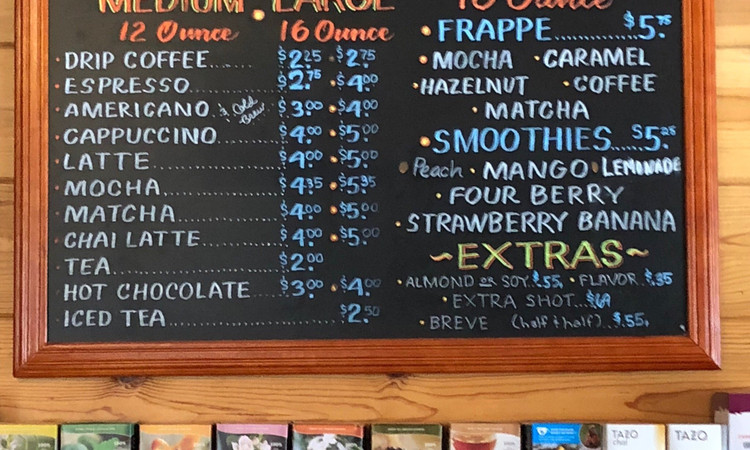 MEDIUM . LARGE
12 Ounce 16 Ounce
DRIP COFFEE...... $2.25 • $2.75
ESPRESSO............ $2.75 • $4.00
AMERICANO & Cold Brew $3.00 • $4.00
CAPPUCCINO......... $4.00 • $5.00
LATTE................ $4.00 • $5.00
MOCHA............... $4.35 • $5.35
MATCHA.............. $4.00 • $5.00
CHAI LATTE.......... $4.00 • $5.00
TEA.................... $2.00
HOT CHOCOLATE..... $3.00 • $4.00
ICED TEA........................ $2.50
16 Ounce
• FRAPPE............ $5.75
• MOCHA • CARAMEL
• HAZELNUT • COFFEE
• MATCHA
• SMOOTHIES..... $5.25
• Peach • MANGO • LEMONADE
• FOUR BERRY
• STRAWBERRY BANANA
~EXTRAS~
• ALMOND OR SOY. $.55 • FLAVOR. $.35
• EXTRA SHOT... $.69
• BREVE (half & half)... $.55
TAZO
chai
TAZO